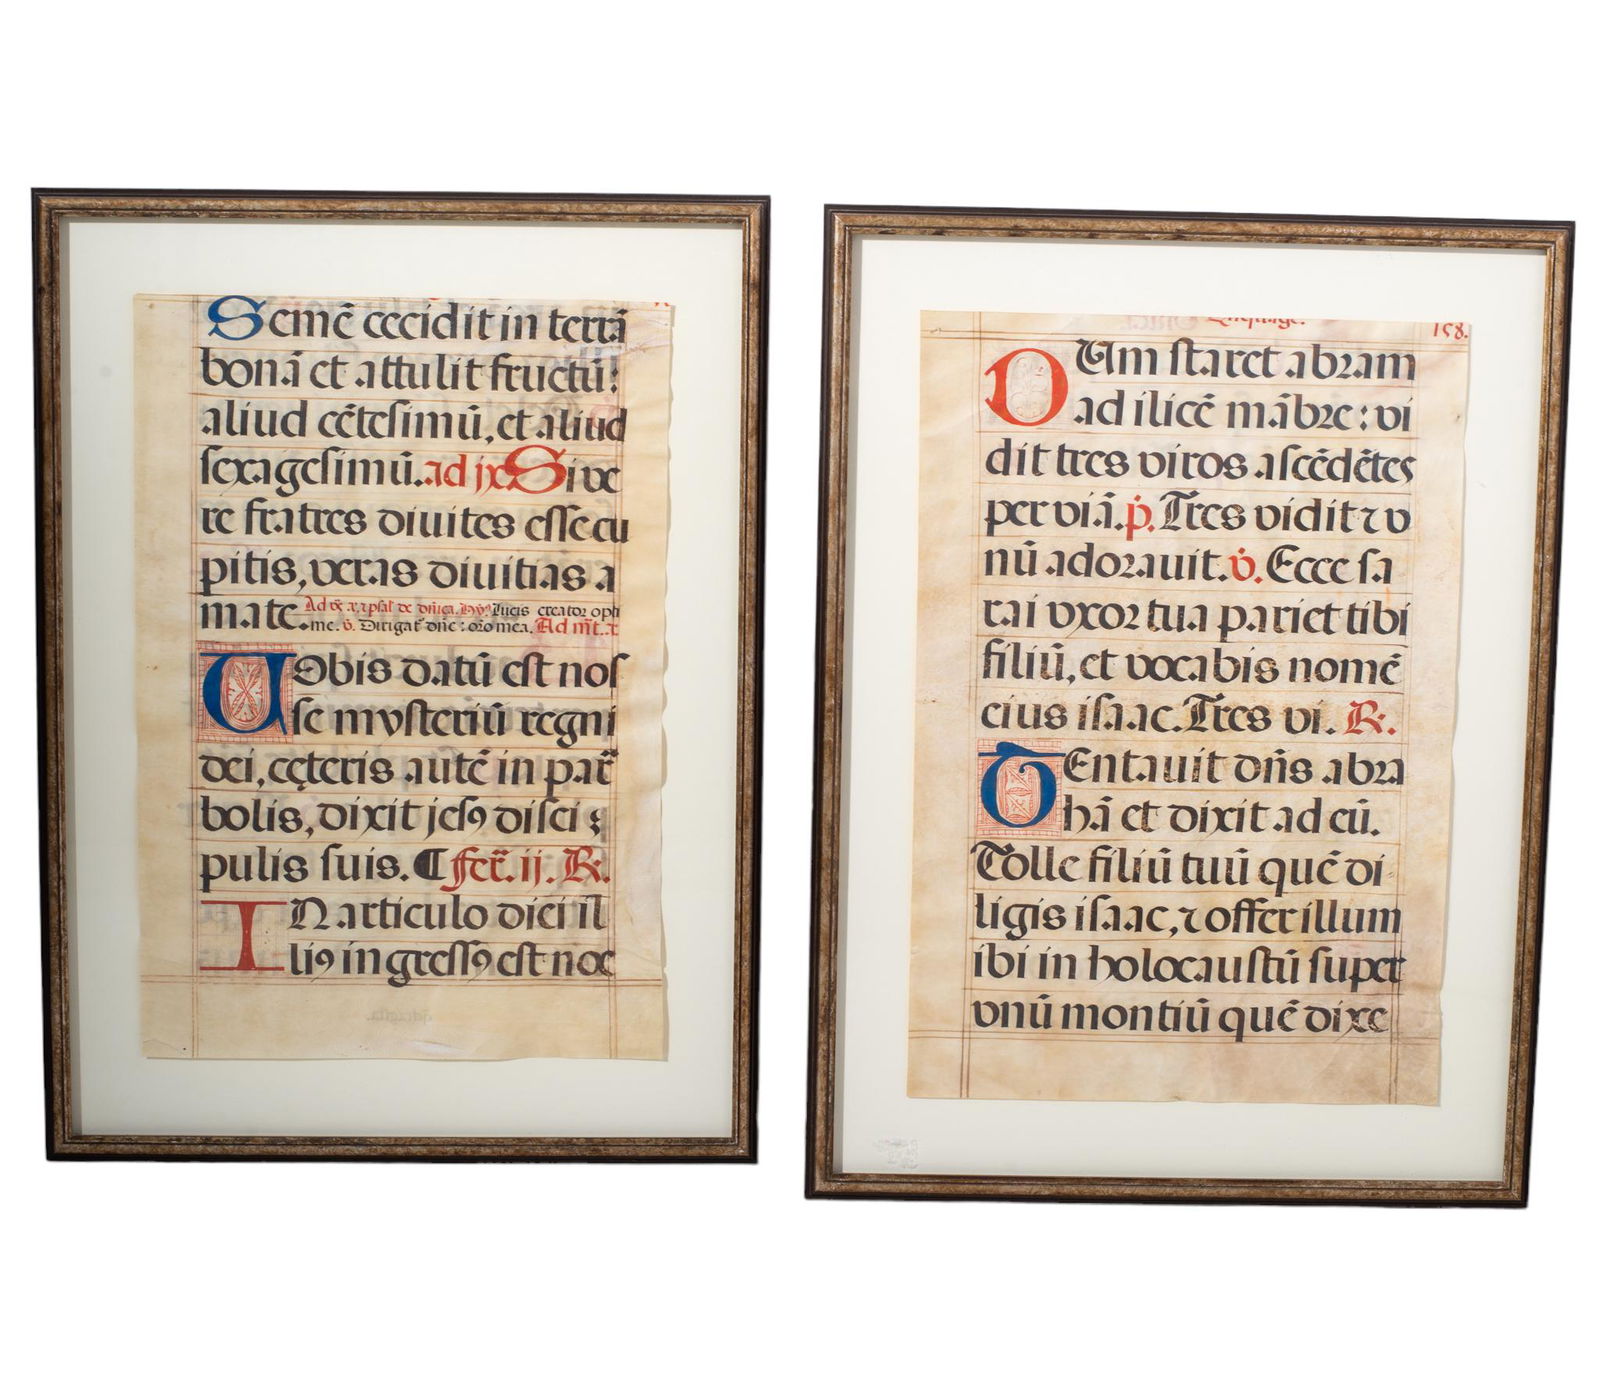 Semẽ cecidit in terrã
bonã et attulit fructũ:
aliud cẽtesimũ, et aliud
sexagesimũ. ad jx Si ve
re fratres divites esse cu
pitis, veras divitias a
mate.
Lucis creator opti
me. v̇. Dirigat͂ dñe: orõ mea. Ad
Uobis datũ est nos
se mysteriũ regni
dei, cęteris autẽ in par
bolis, dixit jesꝰ disci
pulis suis. ¶ fer̃. ij. R.
IN articulo diei il
liꝰ ingressꝰ est noe
158.
DUm staret abram
ad ilicẽ mãbre: vi
dit tres viros ascẽdẽtes
per viã. ṗ. Tres vidit ⁊ v
nũ adoravit. v̇. Ecce sa
rai vxor tua pariet tibi
filiũ, et vocabis nomẽ
eius isaac. Tres vi. R.
TEntavit dñs abra
hã et dixit ad eũ.
Tolle filiũ tuũ quẽ di
ligis isaac, ⁊ offer illum
ibi in holocaustũ super
vnũ montiũ quẽ dixe